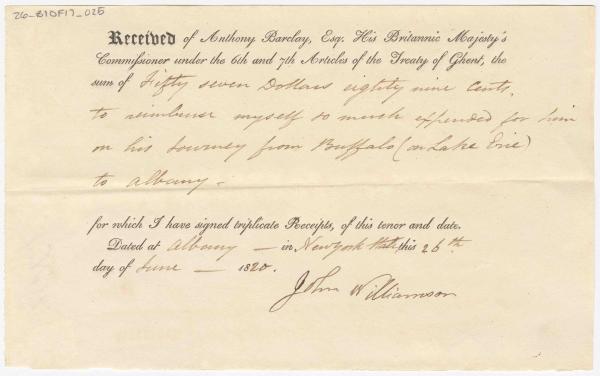 26-B10F17-025
Received of Anthony Barclay, Esq. His Britannic Majesty's
Commissioner under the 6th and 7th Articles of the Treaty of Ghent, the
sum of Fifty seven Dollars eighty nine Cents,
to reimburse myself so much expended for him
on his Journey from Buffalo (on Lake Erie)
to Albany.
for which I have signed triplicate Receipts, of this tenor and date.
Dated at Albany — in New York State this 26th
day of June — 1820.
John Williamson